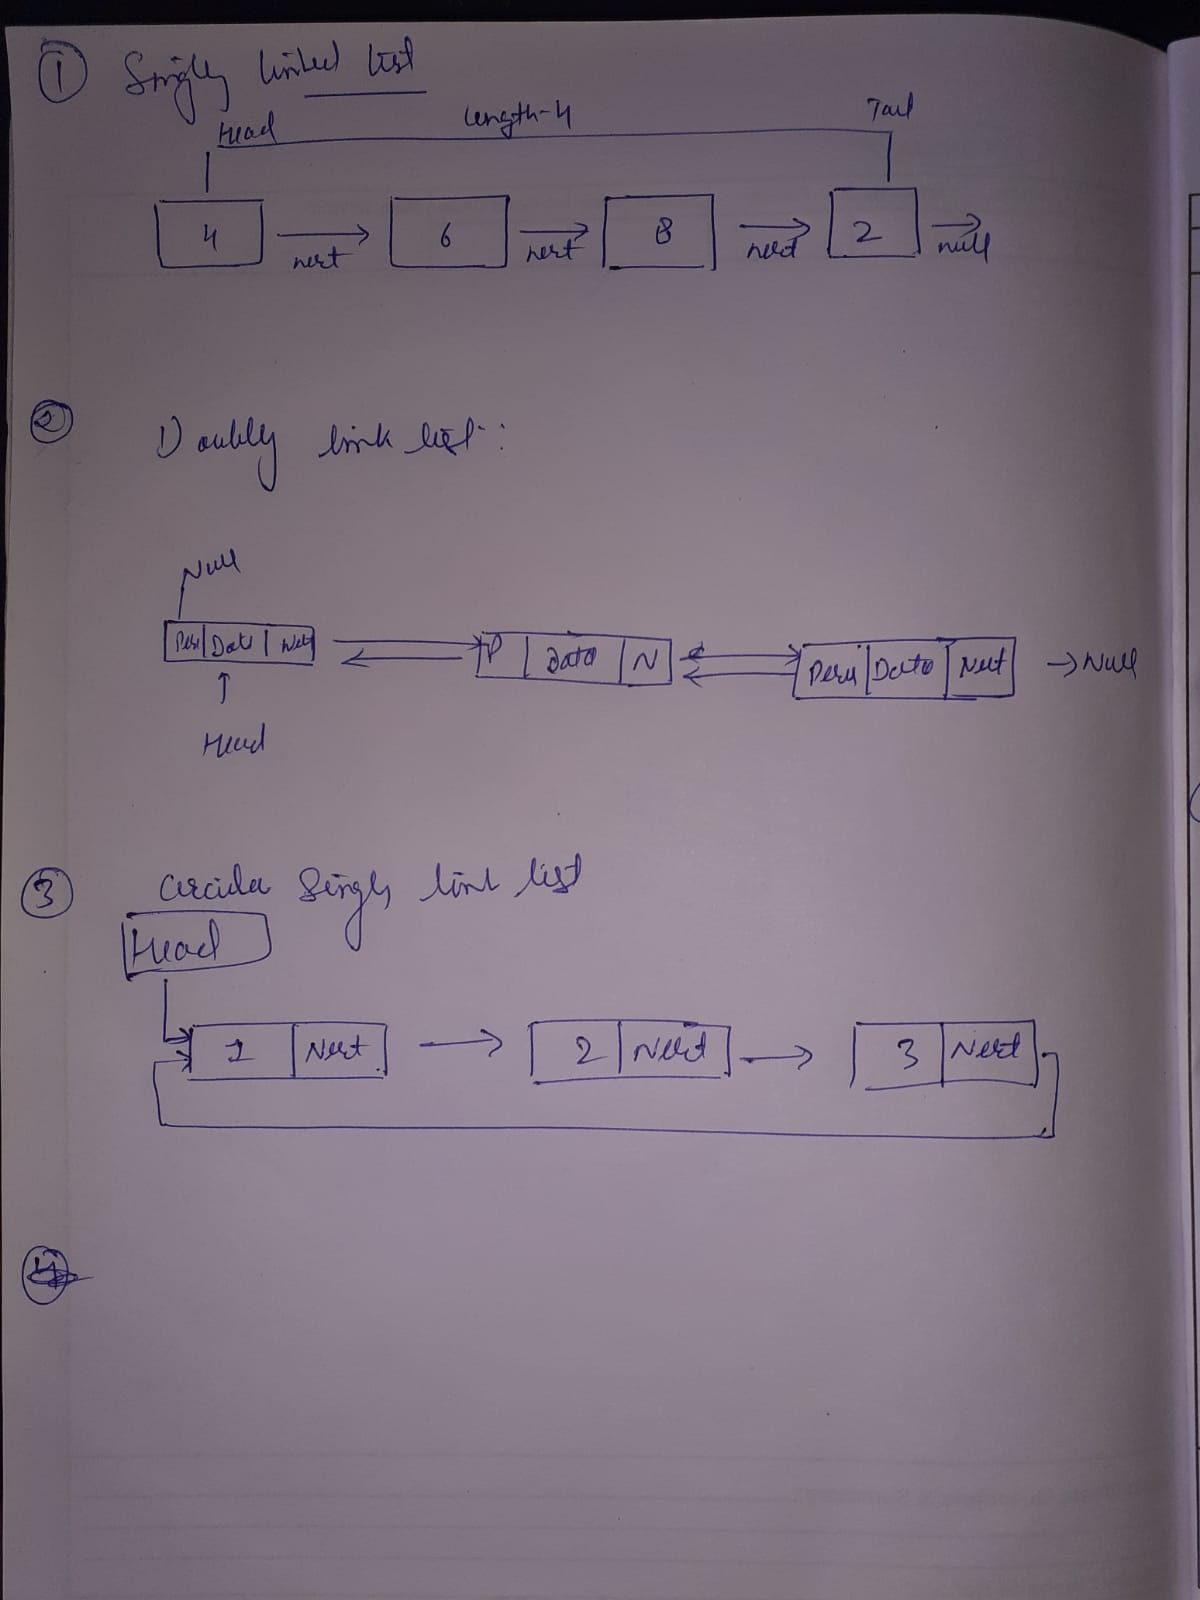 ① Singly linked list
Head Length-4 Tail
4 next 6 next 8 next 2 null
② Doubly link list:
Null
Data Next P Data N Data Next → Null
Head
③ Circular Singly link list
Head
1 Next → 2 Next → 3 Next